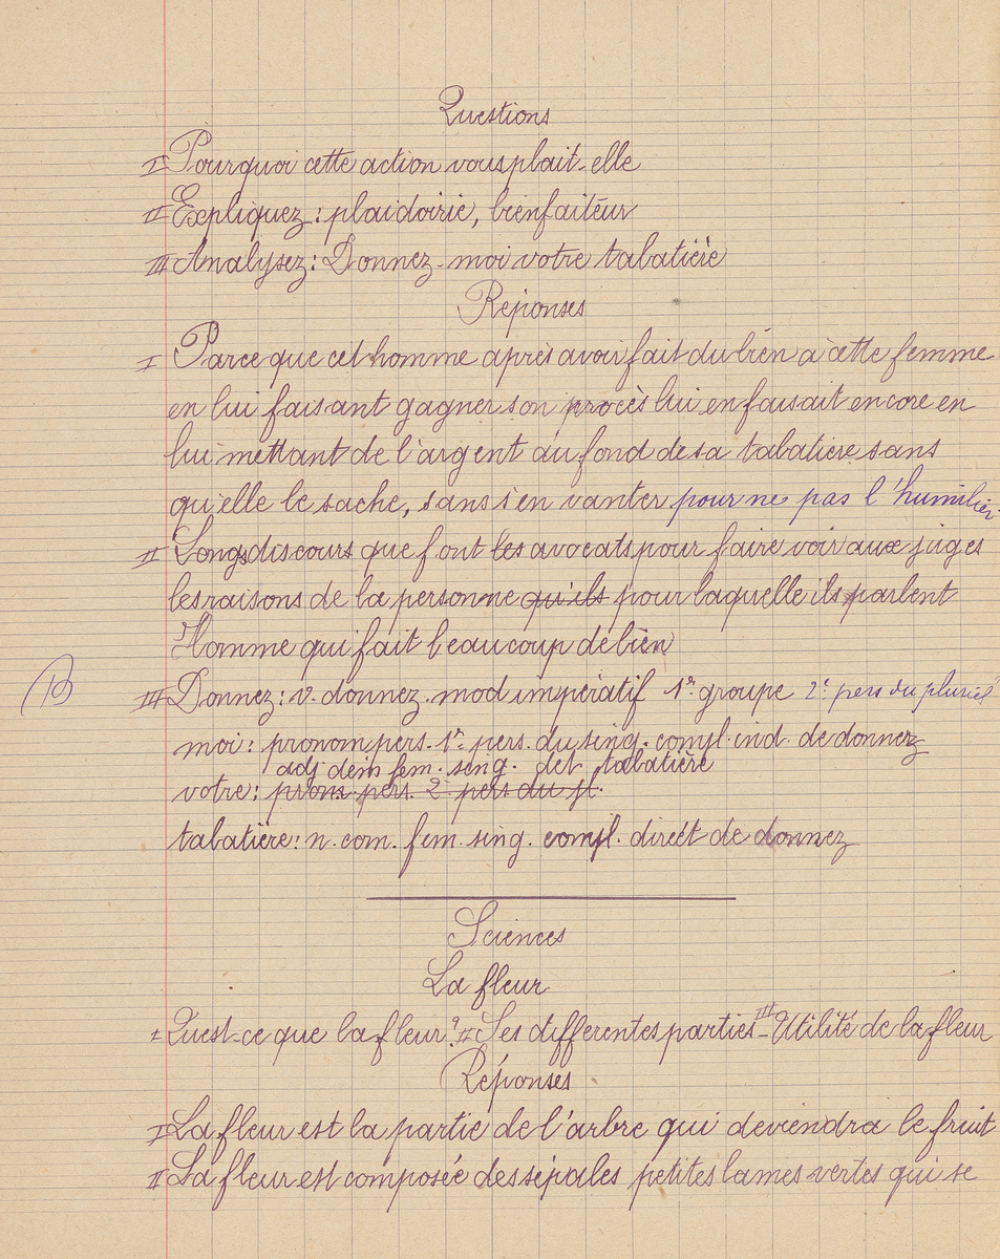 Questions
I Pourquoi cette action vous plait-elle
II Expliquez : plaidoirie, bienfaiteur
III Analysez : Donnez-moi votre tabatière
Réponses
I Parce que cet homme après avoir fait du bien à cette femme
en lui faisant gagner son procès lui en faisait encore en
lui mettant de l'argent au fond de sa tabatière sans
qu'elle le sache, sans s'en vanter pour ne pas l'humilier.
II Longs discours que font les avocats pour faire voir aux juges
les raisons de la personne qu'ils pour laquelle ils parlent
Homme qui fait beaucoup de bien
B
III Donnez : v. donnez. mod impératif 1er groupe 2e pers du pluriel
moi : pronom pers. 1re pers. du sing. compl. ind. de donnez
adj dém fem. sing. det tabatière
votre : pron. pers. 2 pers du pl.
tabatière : n. com. fem. sing. compl. direct de donnez
Sciences
La fleur
I Quest-ce que la fleur ? II Ses differentes parties - III Utilité de la fleur
Réponses
I La fleur est la partie de l'arbre qui deviendra le fruit
II La fleur est composée des sépales petites lames vertes qui se